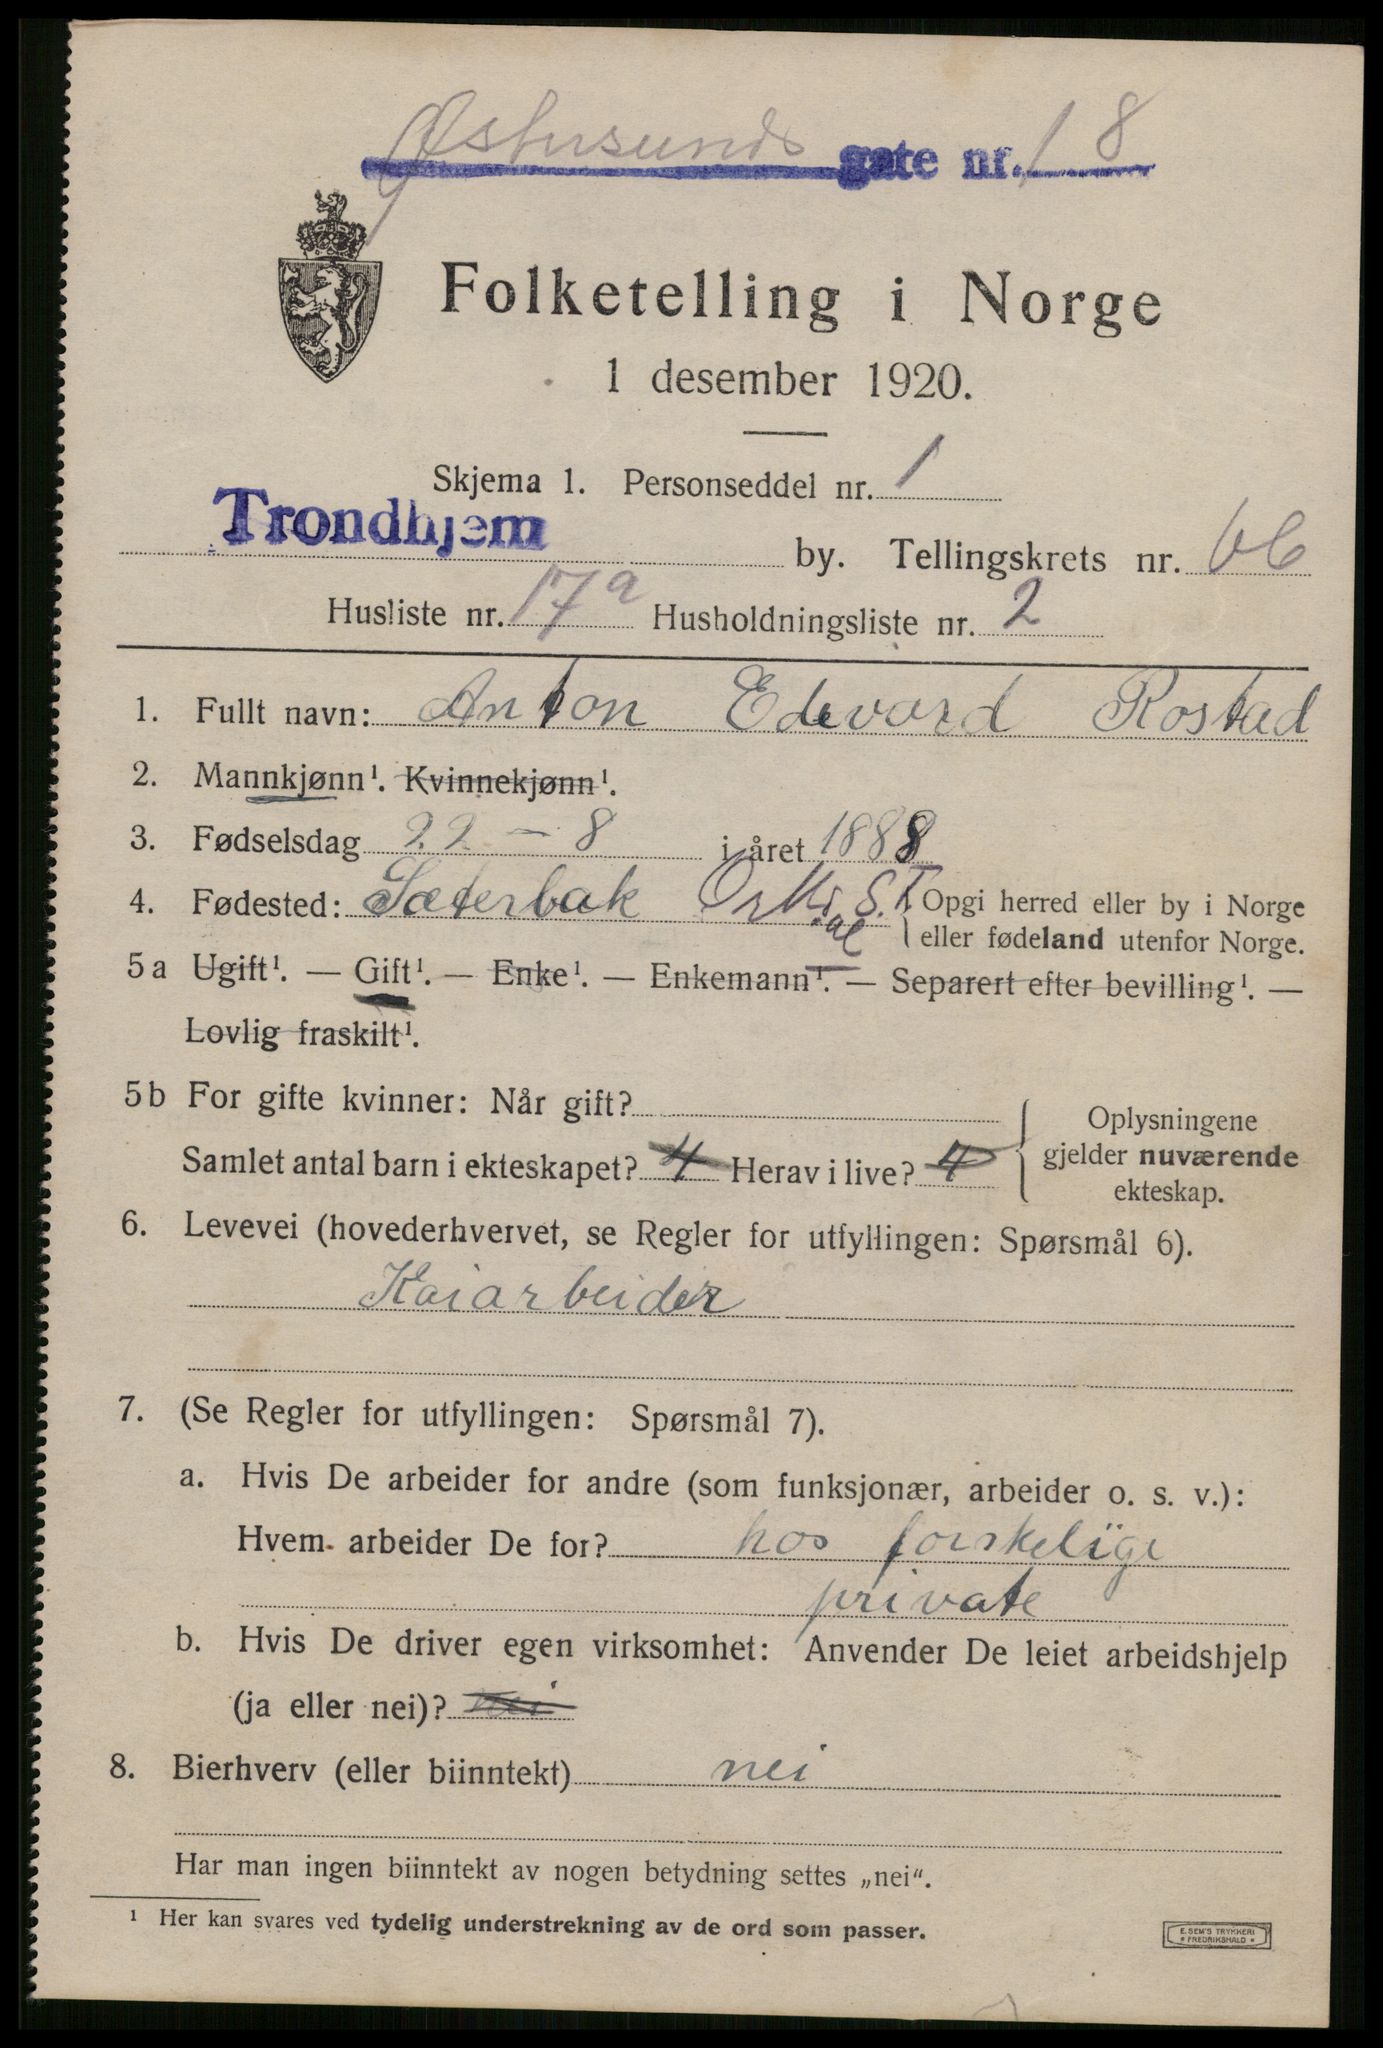 Østersunds gate nr. 18
Folketelling i Norge
1 desember 1920.
Skjema 1. Personseddel nr. 1
Trondhjem by. Tellingskrets nr.
Husliste nr. 17a Husholdningsliste nr. 2
1. Fullt navn: Anton Edevard Rostad
2. Mannkjønn¹. Kvinnekjønn¹.
3. Fødselsdag 22 - 8 i året 1888
4. Fødested: Sæterbak S.T. { Opgi herred eller by i Norge
eller fødeland utenfor Norge.
5a Ugift¹. — Gift¹. — Enke¹. — Enkemann¹. — Separert efter bevilling¹. —
Lovlig fraskilt¹.
5b For gifte kvinner: Når gift?
Samlet antal barn i ekteskapet? 4 Herav i live? 4
Oplysningene
gjelder nuværende
ekteskap.
6. Levevei (hovederhvervet, se Regler for utfyllingen: Spørsmål 6).
Kaiarbeider
7. (Se Regler for utfyllingen: Spørsmål 7).
a. Hvis De arbeider for andre (som funksjonær, arbeider o. s. v.):
Hvem arbeider De for? hos forskelige
private
b. Hvis De driver egen virksomhet: Anvender De leiet arbeidshjelp
(ja eller nei)? nei
8. Bierhverv (eller biinntekt) nei
Har man ingen biinntekt av nogen betydning settes „nei“.
¹ Her kan svares ved tydelig understrekning av de ord som passer.
E. SEM'S TRYKKERI
FREDRIKSHALD